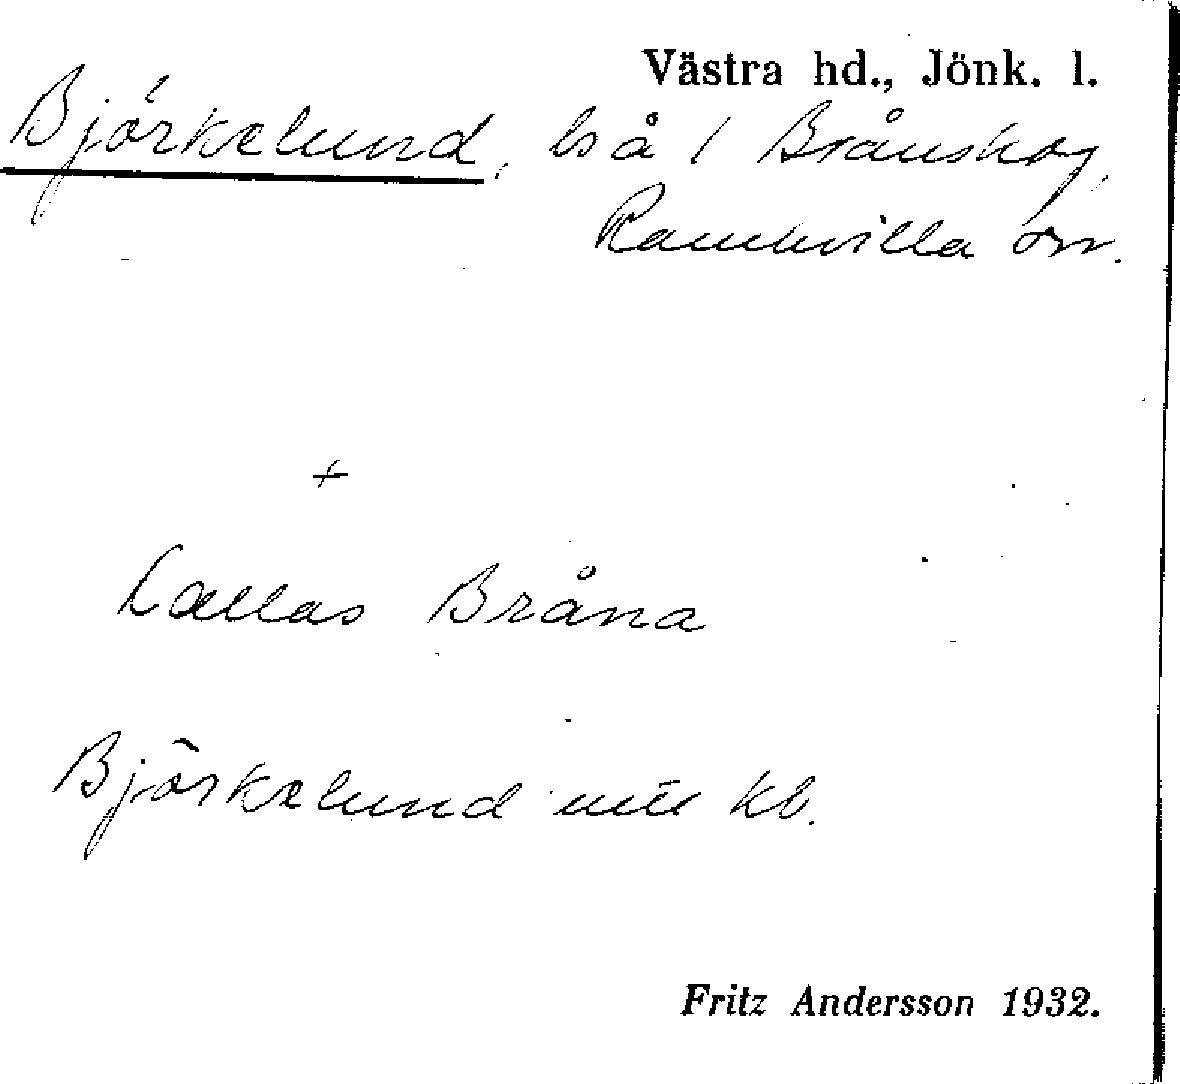 Västra hd., Jönk. l.
Björkelund, bs å 1 Brånskog,
Ramkvilla sn.
+
Kallas Bråna
Björkelund mtl kb.
Fritz Andersson 1932.